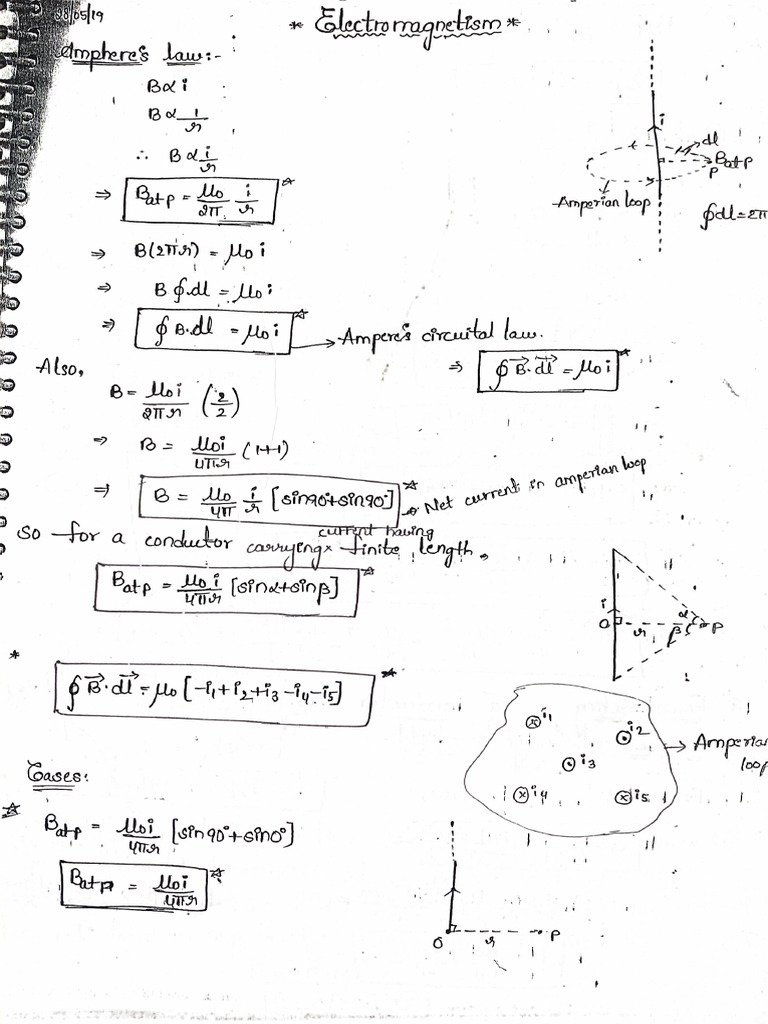 28/05/19
* Electromagnetism *
Amphere's law:-
B∝i
B∝ 1/r
∴ B∝ i/r
⇒ B at P = μ0/2π i/r
i
dl
B at P
P
Amperian loop
∮dl=2π
⇒ B(2πr) = μ0 i
⇒ B ∮.dl = μ0 i
⇒ ∮ B.dl = μ0 i → Ampere's circuital law.
⇒ ∮ B⃗.dl⃗ = μ0 i
Also,
B = μ0 i/2πr (2/2)
⇒ B = μ0 i/4πr (1+1)
⇒ B = μ0/4π i/r [sin90°+sin90°] → Net current in amperian loop
So for a conductor carrying current having finite length.
B at P = μ0 i/4πr [sinα+sinβ]
i
O
r
α
β
P
* ∮ B⃗.dl⃗ = μ0 [-i1+i2+i3-i4-i5]
⊗ i1
⊙ i2
⊙ i3
⊗ i4
⊗ i5
→ Amperian loop
Cases:
B at P = μ0 i/4πr [sin90°+sin0°]
B at P = μ0 i/4πr
O
r
P